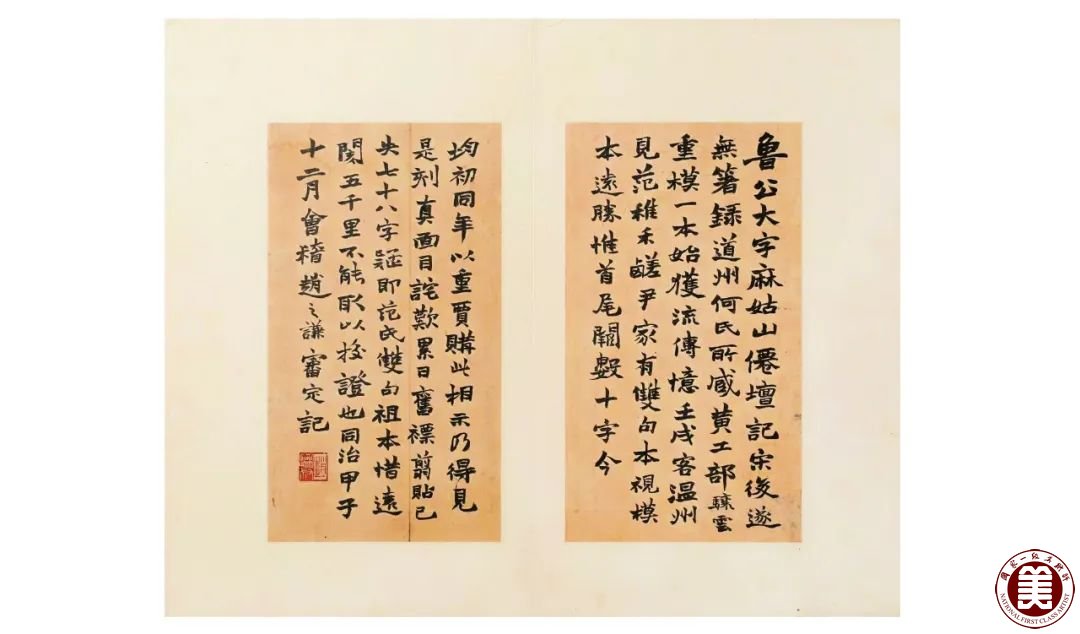 魯公大字麻姑山僊壇記宋後遂
無箸錄道州何氏所臧黃工部雲
重模一本始獲流傳憶壬戌客温州
見范稚禾鹺尹家有雙句本視模
本遠勝惟首尾闕數十字今
均初同年以重賈購此相示乃得見
是刻真面目詫歎累日舊褾翦貼已
失七十八字疑即范氏雙句祖本惜遠
閡五千里不能取以挍證也同治甲子
十二月會稽趙之謙審定記
國家一级美術師
美
NATIONAL FIRST CLASS ARTIST